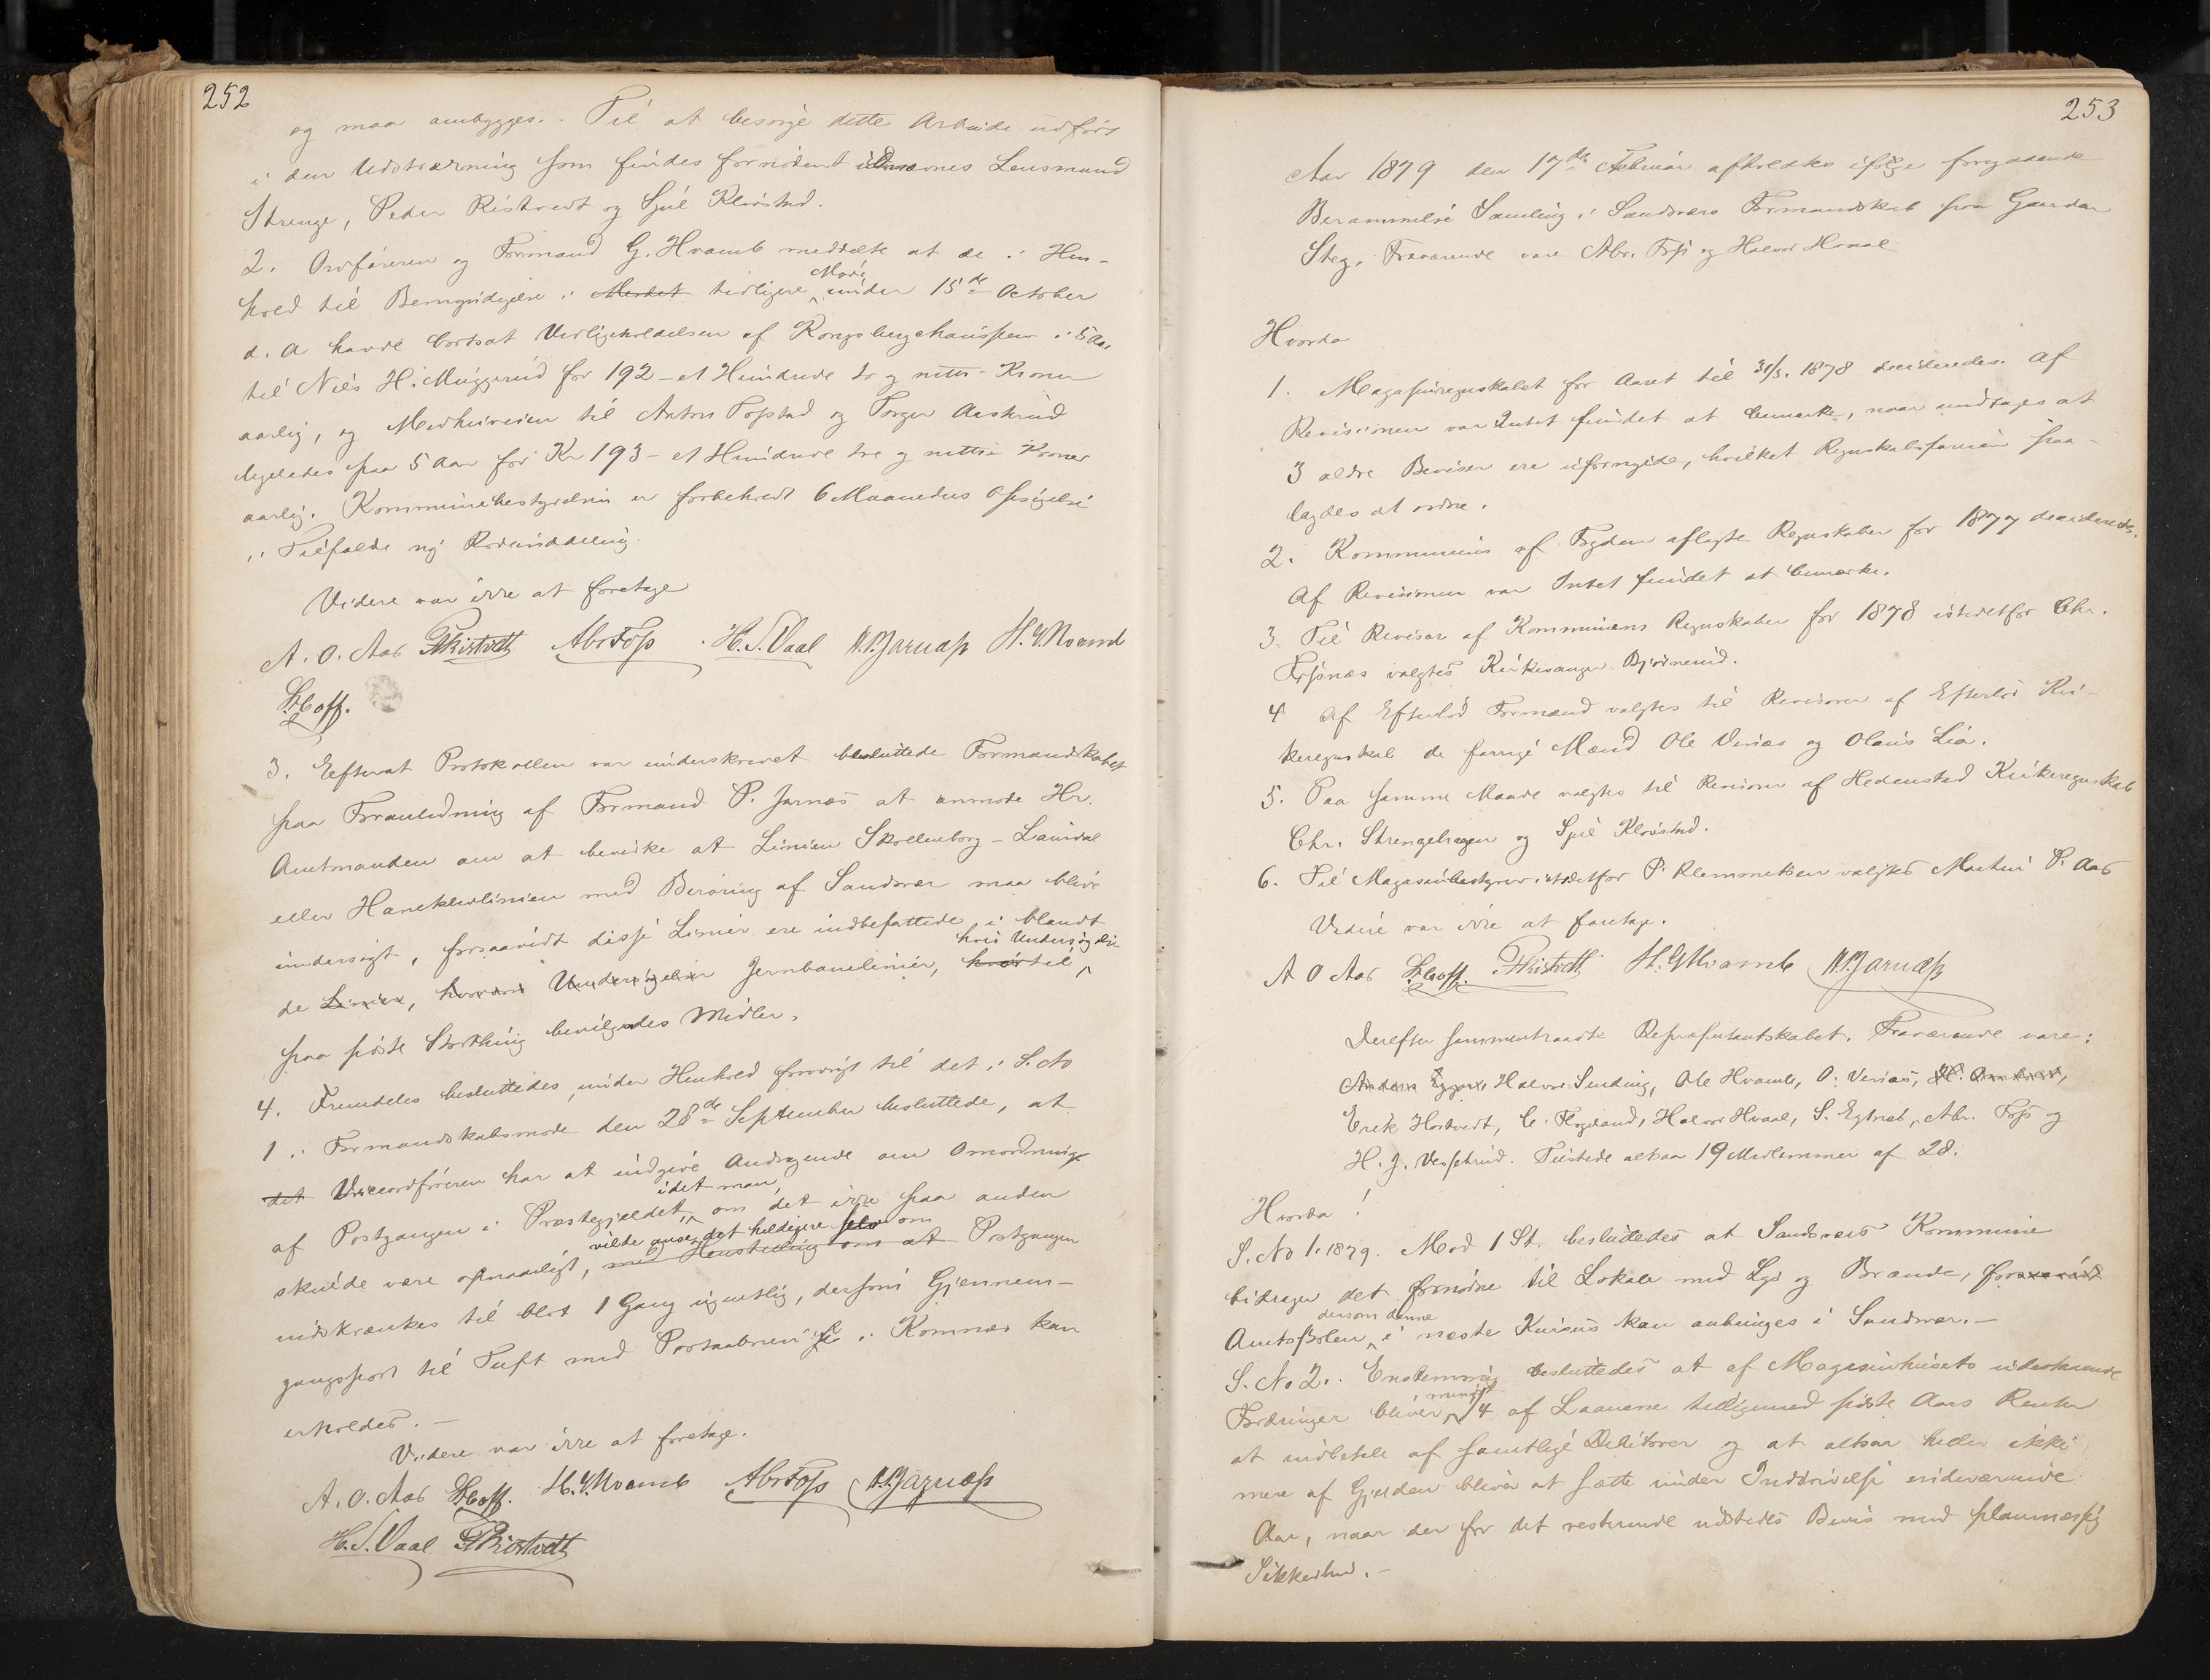 252
og maa ombygges. Til at besørge dette Arbeide udført
i den Udstrækning som findes fornødent Lensmand
Strenge, Peder Ristvedt og Spil Kløvstad.
2. Ordføreren og Formand G. Hvamb meddelte at de i Hen-
hold til Bemyndigelse i Mødet tidligere Møde under 15de October
d. A havde bortsat Vedligeholdelsen af Kongsbergchausseen i 5 Aar
til Niels H. Muggerud for 192 - et Hundrede to og nitti - Kroner
aarlig, og Medheiveien til Anton Topstad og Torger Aasterud
ligeledes paa 5 Aar for Kr 193 - et Hundrede tre og nitti Kroner
aarlig. Kommunebestyrelsen er forbeholdt 6 Maaneders Opsigelse
i Tilfælde ny Rodeinddeling.
Videre var ikke at foretage
A. O. Aas PRistvedt AbrFoss H. S. Vaal P. Jarnæss H. G. Hvamb
Hoff.
3. Efterat Protokollen var underskrevet besluttede Formandskabet
paa Foranledning af Formand P. Jarnæs at anmode Hr.
Amtmanden om at bevirke at Linien Skollenborg - Laurdal
eller Hanekleolinien med Berøring af Sandsvær maa blive
undersøgt, forsaavidt disse Linier ere indbefattede i blandt
de Linier, hvorom Undersøgelser Jernbanelinier, hvortil hvis Undersøgelse
paa sidste Storthing bevilgedes Midler.
4. Fremdeles besluttedes, under Henhold forøvrigt til det i S. No
1 i Formandskabsmøde den 28de September besluttede, at
det Viceordføreren har at indgive Andragende om Omordning
af Postgangen i Præstegjældet, idet man, om det ikke paa anden
skulde være opnaaeligt, vilde anse det heldigere selv om med Henstilling om at Postgangen
indskrænkes til blot 1 Gang ugentlig, dersom Gjennem-
gangspost til Tuft med Postaabneri i Komnæs kan
erholdes. -
Videre var ikke at foretage.
A. O. Aas Hoff. H. G. Hvamb AbrFoss P. Jarnæss
H. S. Vaal PRistvedt
253
Aar 1879 den 17de Februar afholdtes ifølge foregaaende
Berammelse Samling i Sandsværs Formandskab paa Gaarden
Steg. Fraværende vare Abr. Foss og Halvor Hvaal
Hvorda
1. Magasinregnskabet for Aaret til 31/3. 1878 decideredes. Af
Revisionen var Intet fundet at bemærke, naar undtages at
3 ældre Beviser ere ufornyede, hvilket Regnskabsføreren paa-
lagdes at ordne.
2. Kommunens af Fogden aflagte Regnskaber for 1877 decideredes.
Af Revisionen var Intet fundet at bemærke.
3. Til Revisor af Kommunens Regnskaber for 1878 istedetfor Chr.
Fossnæs valgtes Kirkesanger Bjørnerud.
4 Af Efterlød Formænd valgtes til Revisorer af Efterløds Kir-
keregnskab de forrige Mænd Ole Veraas og Olaus Lia.
5. Paa samme Maade valgtes til Revisorer af Hedenstad Kirkeregnskab
Chr. Strengehagen og Spil Kløvstad.
6. Til Magasinbestyrer istedetfor P. Klemmetsen valgtes Martin P. Aas
Videre var ikke at foretage.
A O Aas Hoff. PRistvedt H. G Hvamb P. Jarnæss
Derefter sammentraadte Repræsentantskabet. Fraværende vare:
Halvor Sending, Ole Hvamb, O. Veraas,
Erik Hostvedt, C. Fogland, Halvor Hvaal, S. Egtvet, Abr. Foss og
H. J. Vesterud. Tilstede altsaa 19 Medlemmer af 28.
Hvorda!
S. No 1. 1879. Mod 1 St. besluttedes at Sandsværs Kommune
bidrager det fornødne til Lokale med Lys og Brænde, forsaavidt
Amtsskolen dersom denne i næste Kursus kan anbringes i Sandsvær. -
S. No 2. Enstemmig besluttedes at af Magasinhusets udestaaende
Fordringer bliver mindst 1/4 af Laanene tilligemed sidste Aars Renter
at indbetale af samtlige Debitorer og at altsaa heller ikke
mere af Gjælden bliver at sætte under Inddrivelse indeværende
Aar, naar der for det resterende udstedes Bevis med planmæssig
Sikkerhed. -